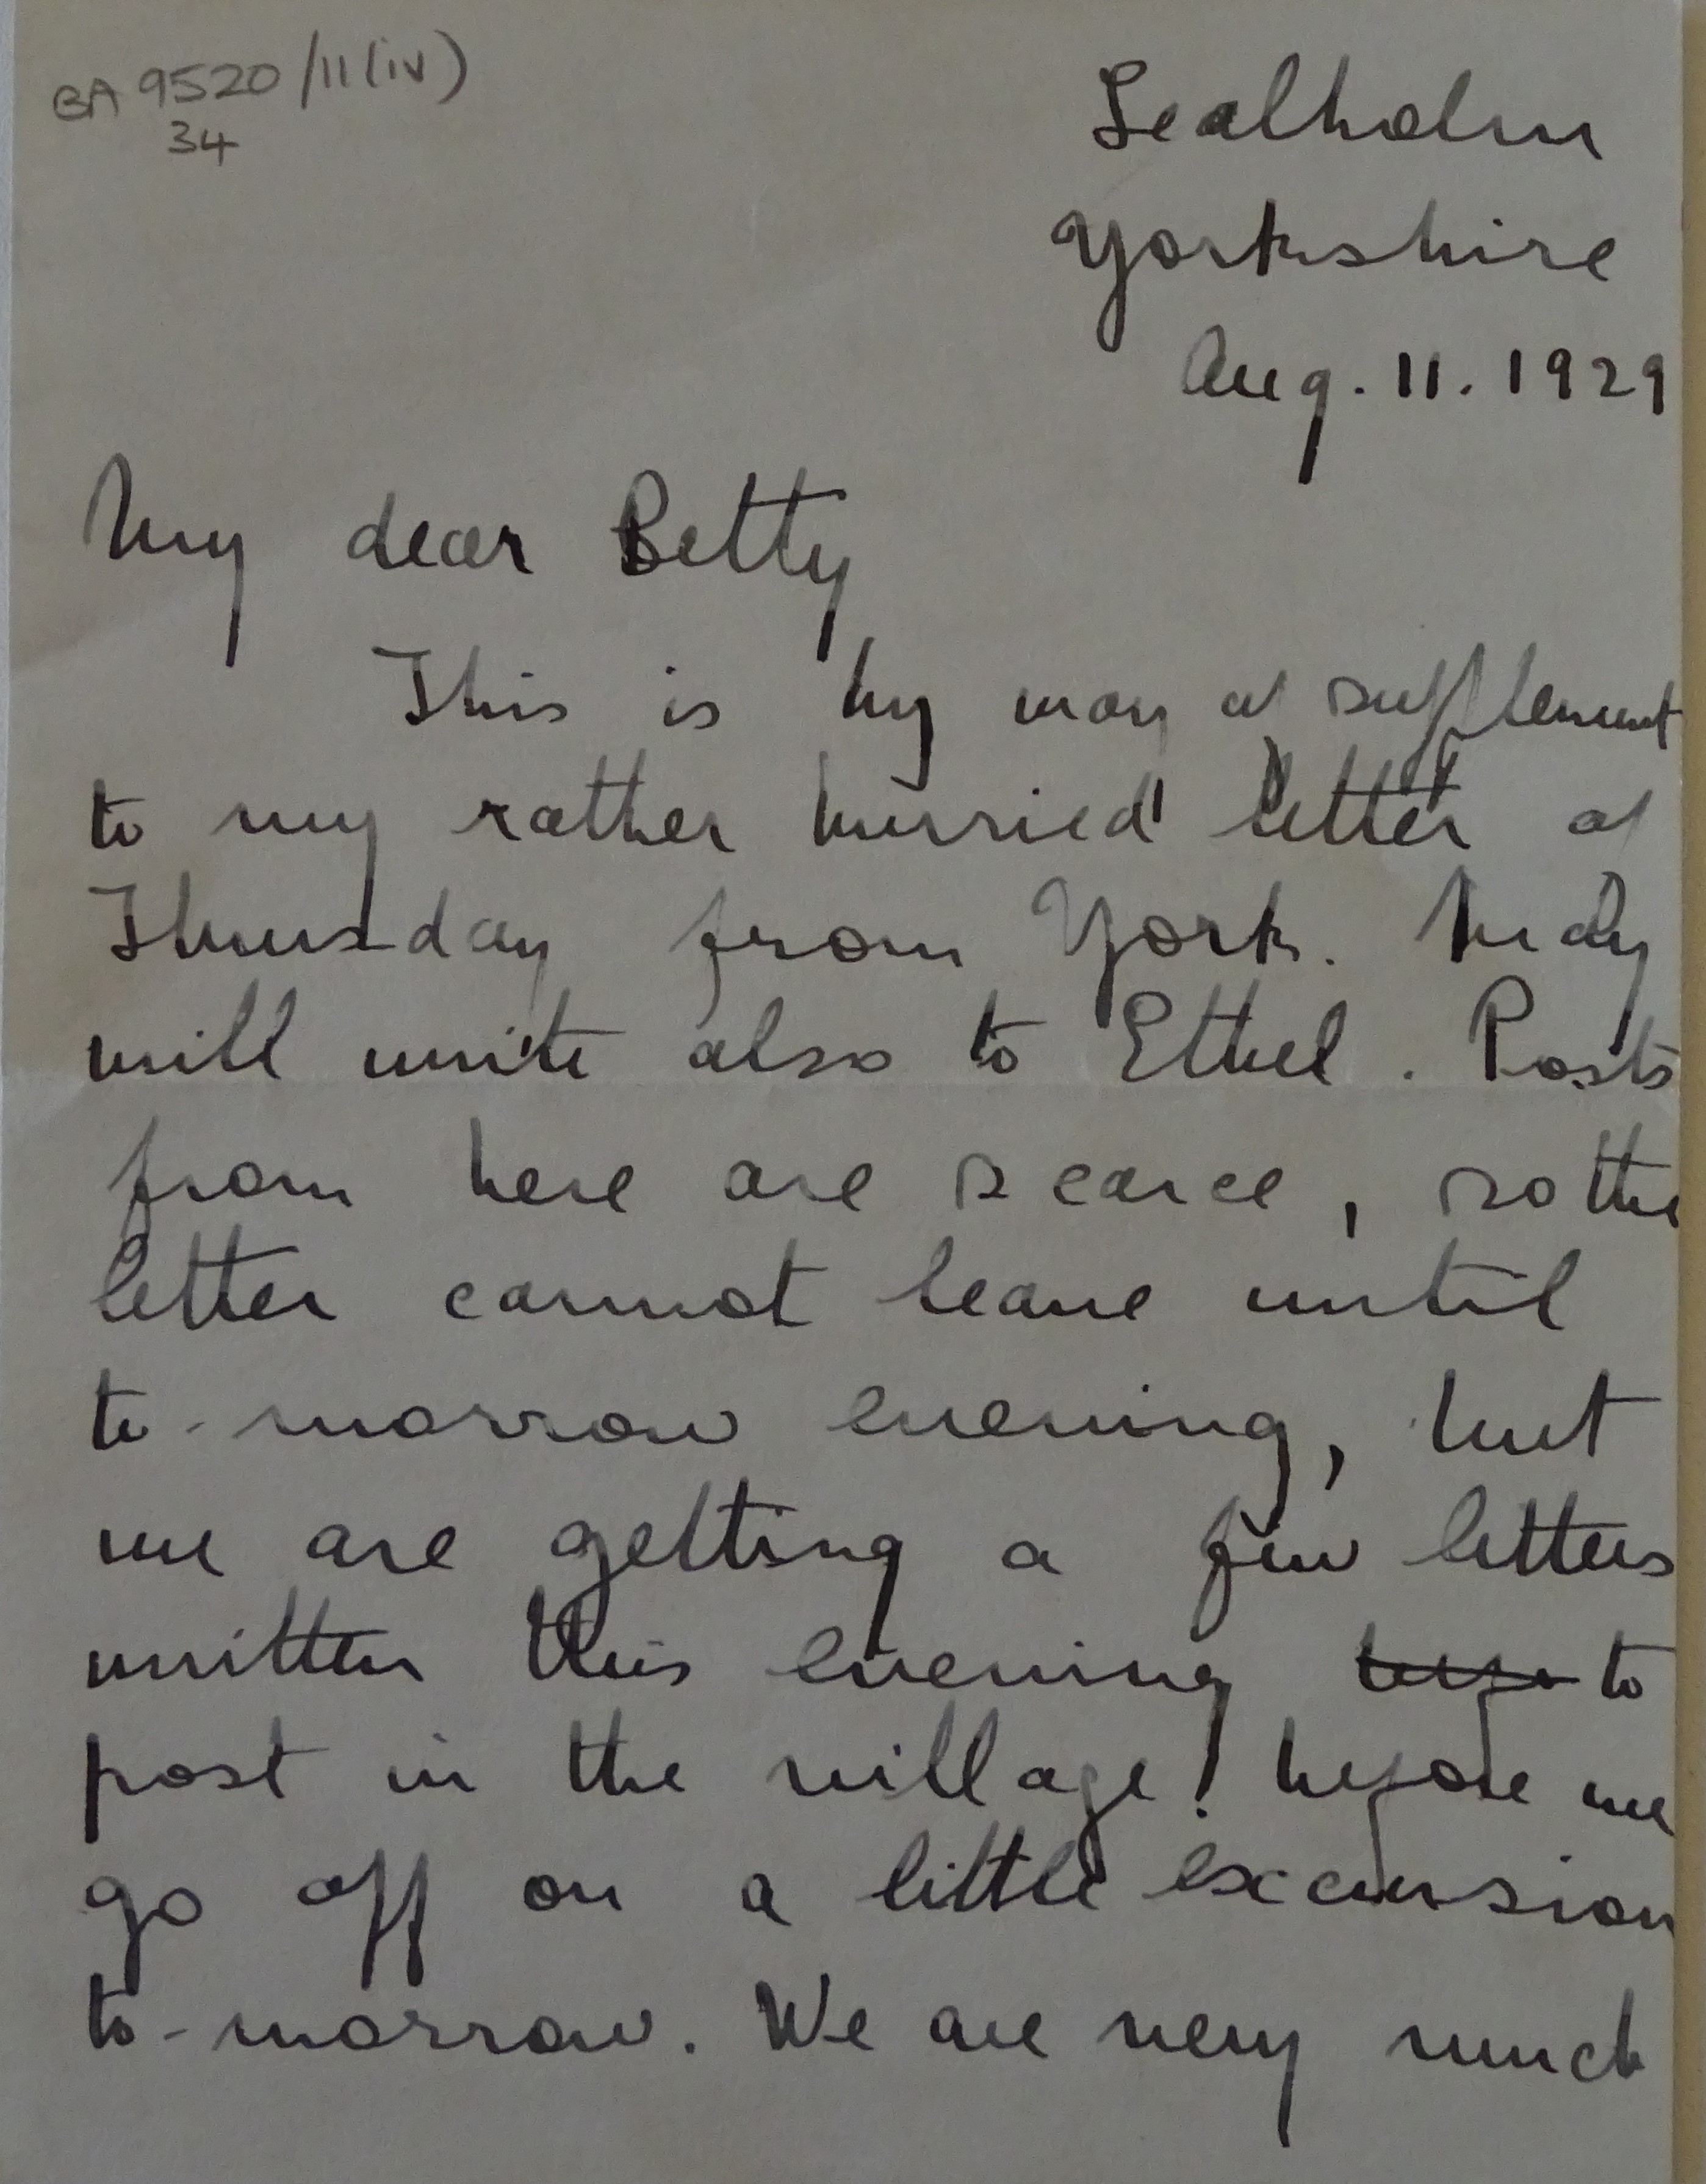 BA 9520/11(iv)
34
Lealholm
Yorkshire
Aug. 11. 1929
My dear Betty
This is by way of supplement
to my rather hurried letter of
Thursday from York.
will write also to Ethel. Posts
from here are scarce, so the
letter cannot leave until
to-morrow evening, but
we are getting a few letters
written this evening to
post in the village! before we
go off on a little excursion
to-morrow. We are very much